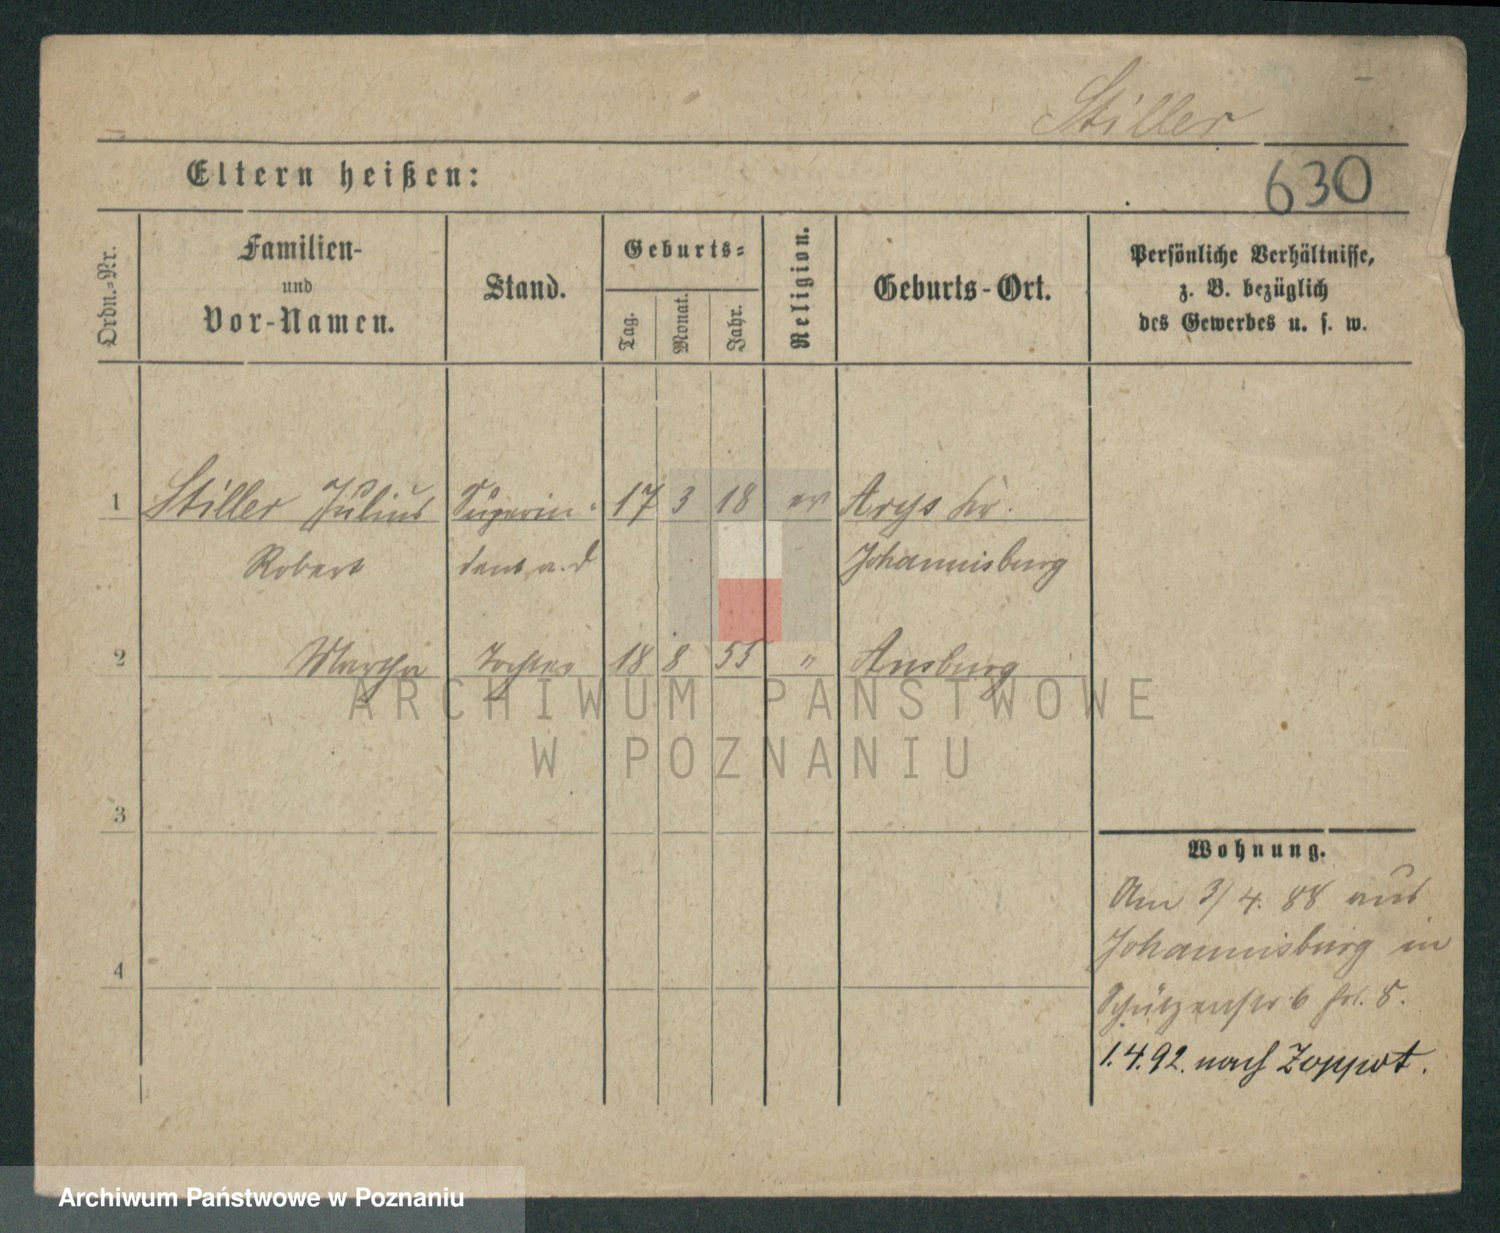 Stiller
Eltern heißen:
630
Ordn.-Nr.
Familien-
und
Vor-Namen.
Stand.
Geburts-
Tag.
Monat.
Jahr.
Religion.
Geburts-Ort.
Persönliche Verhältnisse,
z. B. bezüglich
des Gewerbes u. s. w.
1 Stiller Julius Superin- 17 3 18 ev Arys Kr.
Robert dent a. d Johannisburg
2 Martha Tochter 18 8 55 " Ansburg
ARCHIWUM PAŃSTWOWE
W POZNANIU
3
Wohnung.
Am 3/4. 88 aus
4
Johannisburg in
Schützenstr 6 frl. 8.
1.4.92. nach Zoppot.
Archiwum Państwowe w Poznaniu